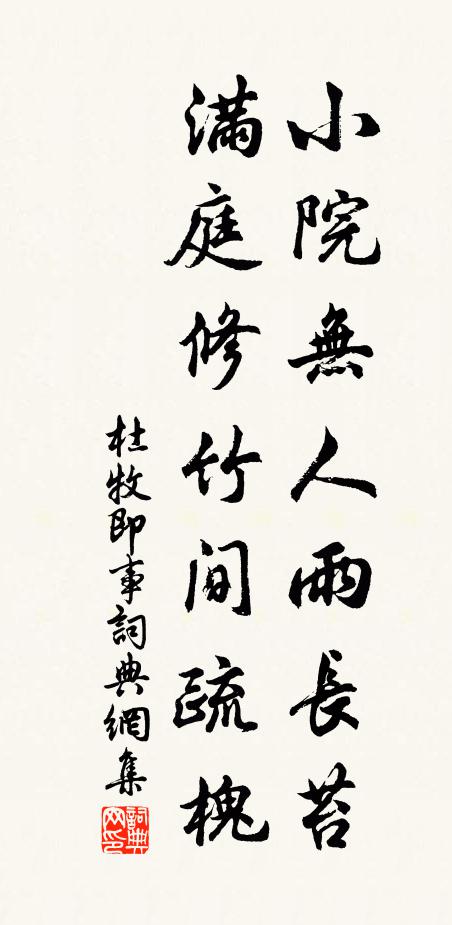 小院無人雨長苔
滿庭修竹間疏槐
杜牧即事詞典網集
詞典网印